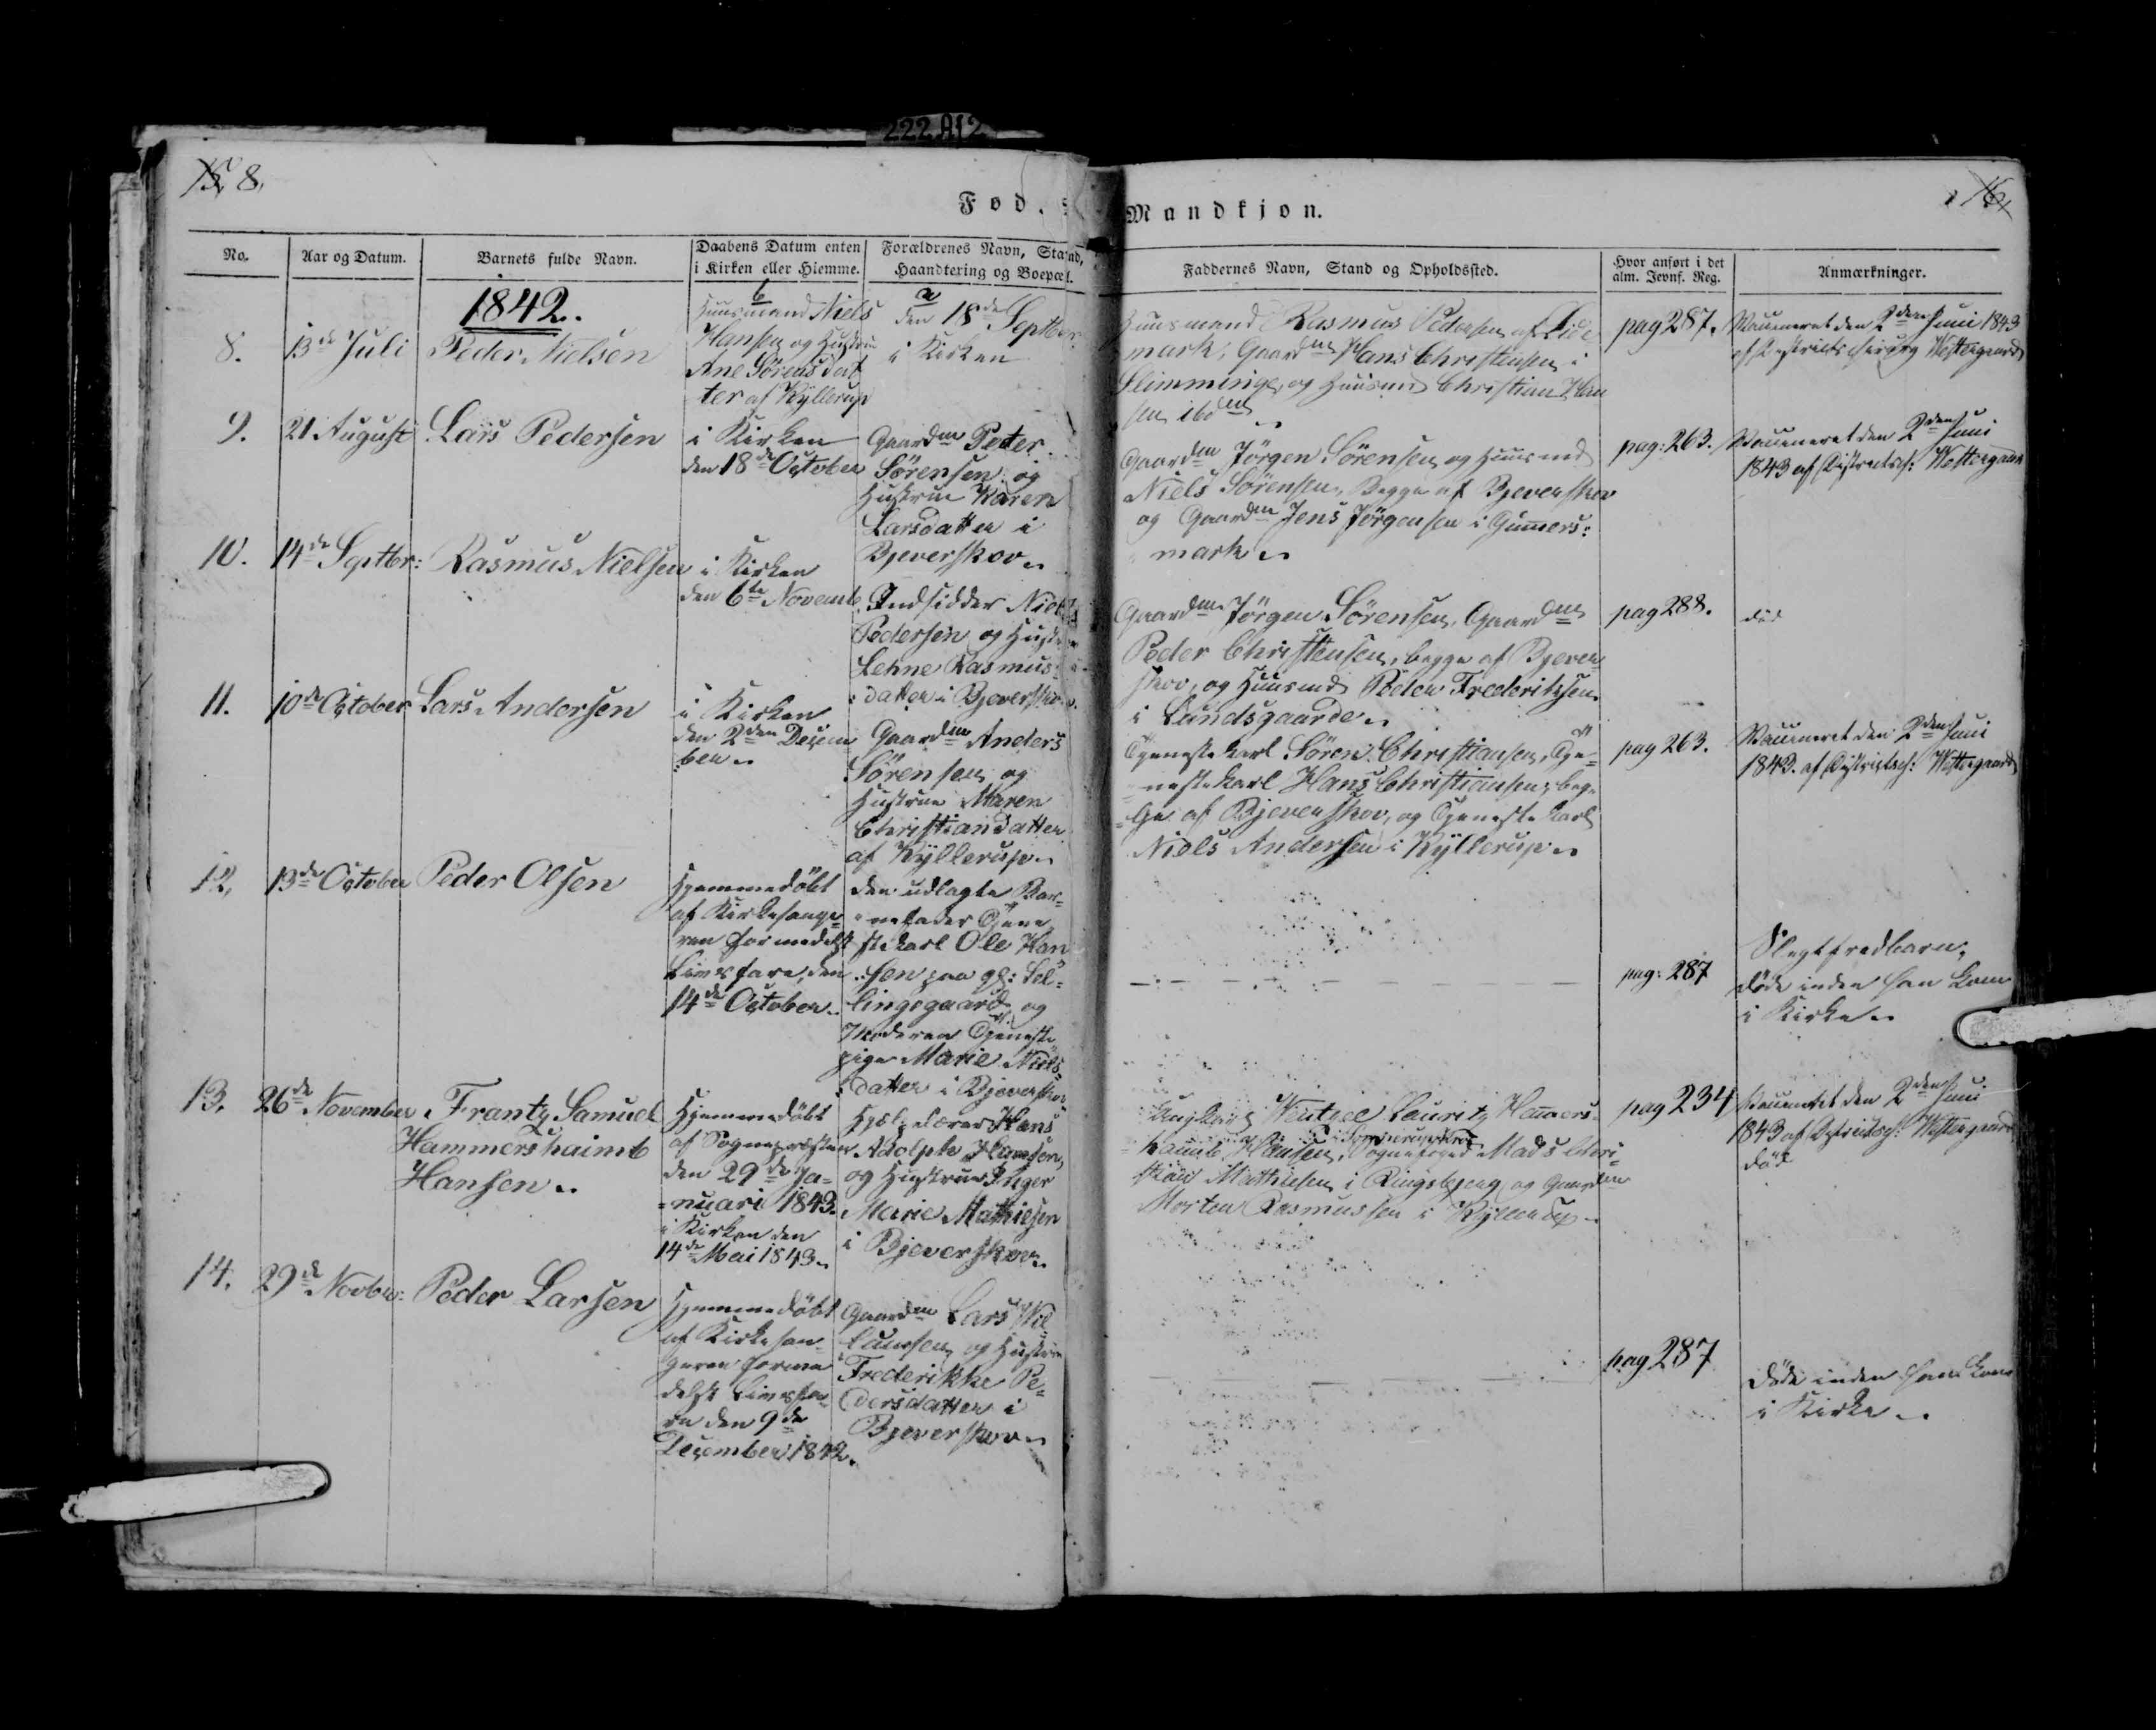 222 A12
15. 8.
16.
Fød. Mandkjøn.
No.
Aar og Datum.
Barnets fulde Navn.
Daabens Datum enten
i Kirken eller Hiemme.
Forældrenes Navn, Stand,
Haandtering og Boepæl.
Faddernes Navn, Stand og Opholdssted.
Hvor anført i det
alm. Jevnf. Reg.
Anmærkninger.
1842.
8.
13de Juli
Peder Nielsen
b
Huusmand Niels
Hansen og Hustru
Ane Sørensdat
ter af Kyllerup
a
den 18de Septber
i Kirken
Huusmand Rasmus Pedersen af Lide
mark, Gaardm Hans Christensen i
Slimminge, og Huusmd Christian Han
sen ibdm
pag 287.
Vaccineret den 2den Juni 1843
af Districtschirurg Westergaard
9.
21 August
Lars Pedersen
i Kirken
den 18de October
Gaardm Peter
Sørensen og
Hustrue Karen
Larsdatter i
Bjeverskov
Gaardm Jörgen Sörensen og Huusmd
Niels Sörensen, Begge af Bjeverskov
og Gaardm Jens Jörgensen i Gummers:
mark
pag: 263.
Vaccineret den 2den Juni
1843 af Districtsch: Westergaard
10.
14de Septbr:
Rasmus Nielsen
i Kirken
den 6te Novemb
Indsidder Niels
Pedersen og Hustrue
Lehne Rasmus:
datter i Bjeverskov.
Gaardm Jörgen Sörensen, Gaardm
Peder Christensen, begge af Bjever
skov, og Huusmd Peder Frederiksen
i Lundsgaarde
pag 288.
död
11.
10de October
Lars Andersen
i Kirken
den 2den Decem
ber
Gaardm Anders
Sörensen og
Hustrue Maren
Christiansdatter
af Kyllerup
Tjenestekarl Sören Christiansen, Tje-
nestekarl Hans Christiansen, beg-
ge af Bjeverskov, og Tjenestekarl
Niels Andersen i Kyllerup
pag 263.
Vaccineret den 2den Juni
1843. af Districtsch: Westergaard
12.
13de October
Peder Olsen
Hjemmedöbt
af Kirkesange
ren formedelst
Livsfare, den
14de October
den udlagte Bar-
nefader Tjene
stekarl Ole Han
sen paa gl: Løl-
lingegaard og
Moderen Tjeneste
pige Marie Niels
datter i Bjeverskov
pag: 287
Slegfredbarn,
döde inden han kom
i Kirke
13.
26de November
Frantz Samuel
Hammershaimb
Hansen
Hjemmedöbt
af Sognepræsten
den 29de Ja-
nuari 1843.
i Kirken den
14de Mai 1843.
Hjelpelærer Hans
Adolph Hansen,
og Hustrue Inger
Marie Mathiesen
i Bjeverskov
Wentzel Lauritz Hammers-
haimb Hansen, Sognefoged Mads Chri-
stian Mathiesen i Ringsbjerg og Gaardm
Morten Rasmussen i Kyllerup
pag 234
Vaccineret den 2den Juni
1843 af Districtsch: Westergaard
död
14.
29de Novbr:
Peder Larsen
Hjemmedöbt
af Kirkesan-
geren forme
delst Livsfa
re den 9de
December 1842.
Gaardm Lars Wil
lumsen og Hustrue
Frederikke Pe-
dersdatter i
Bjeverskov
pag 287
Döde inden han kom
i Kirke